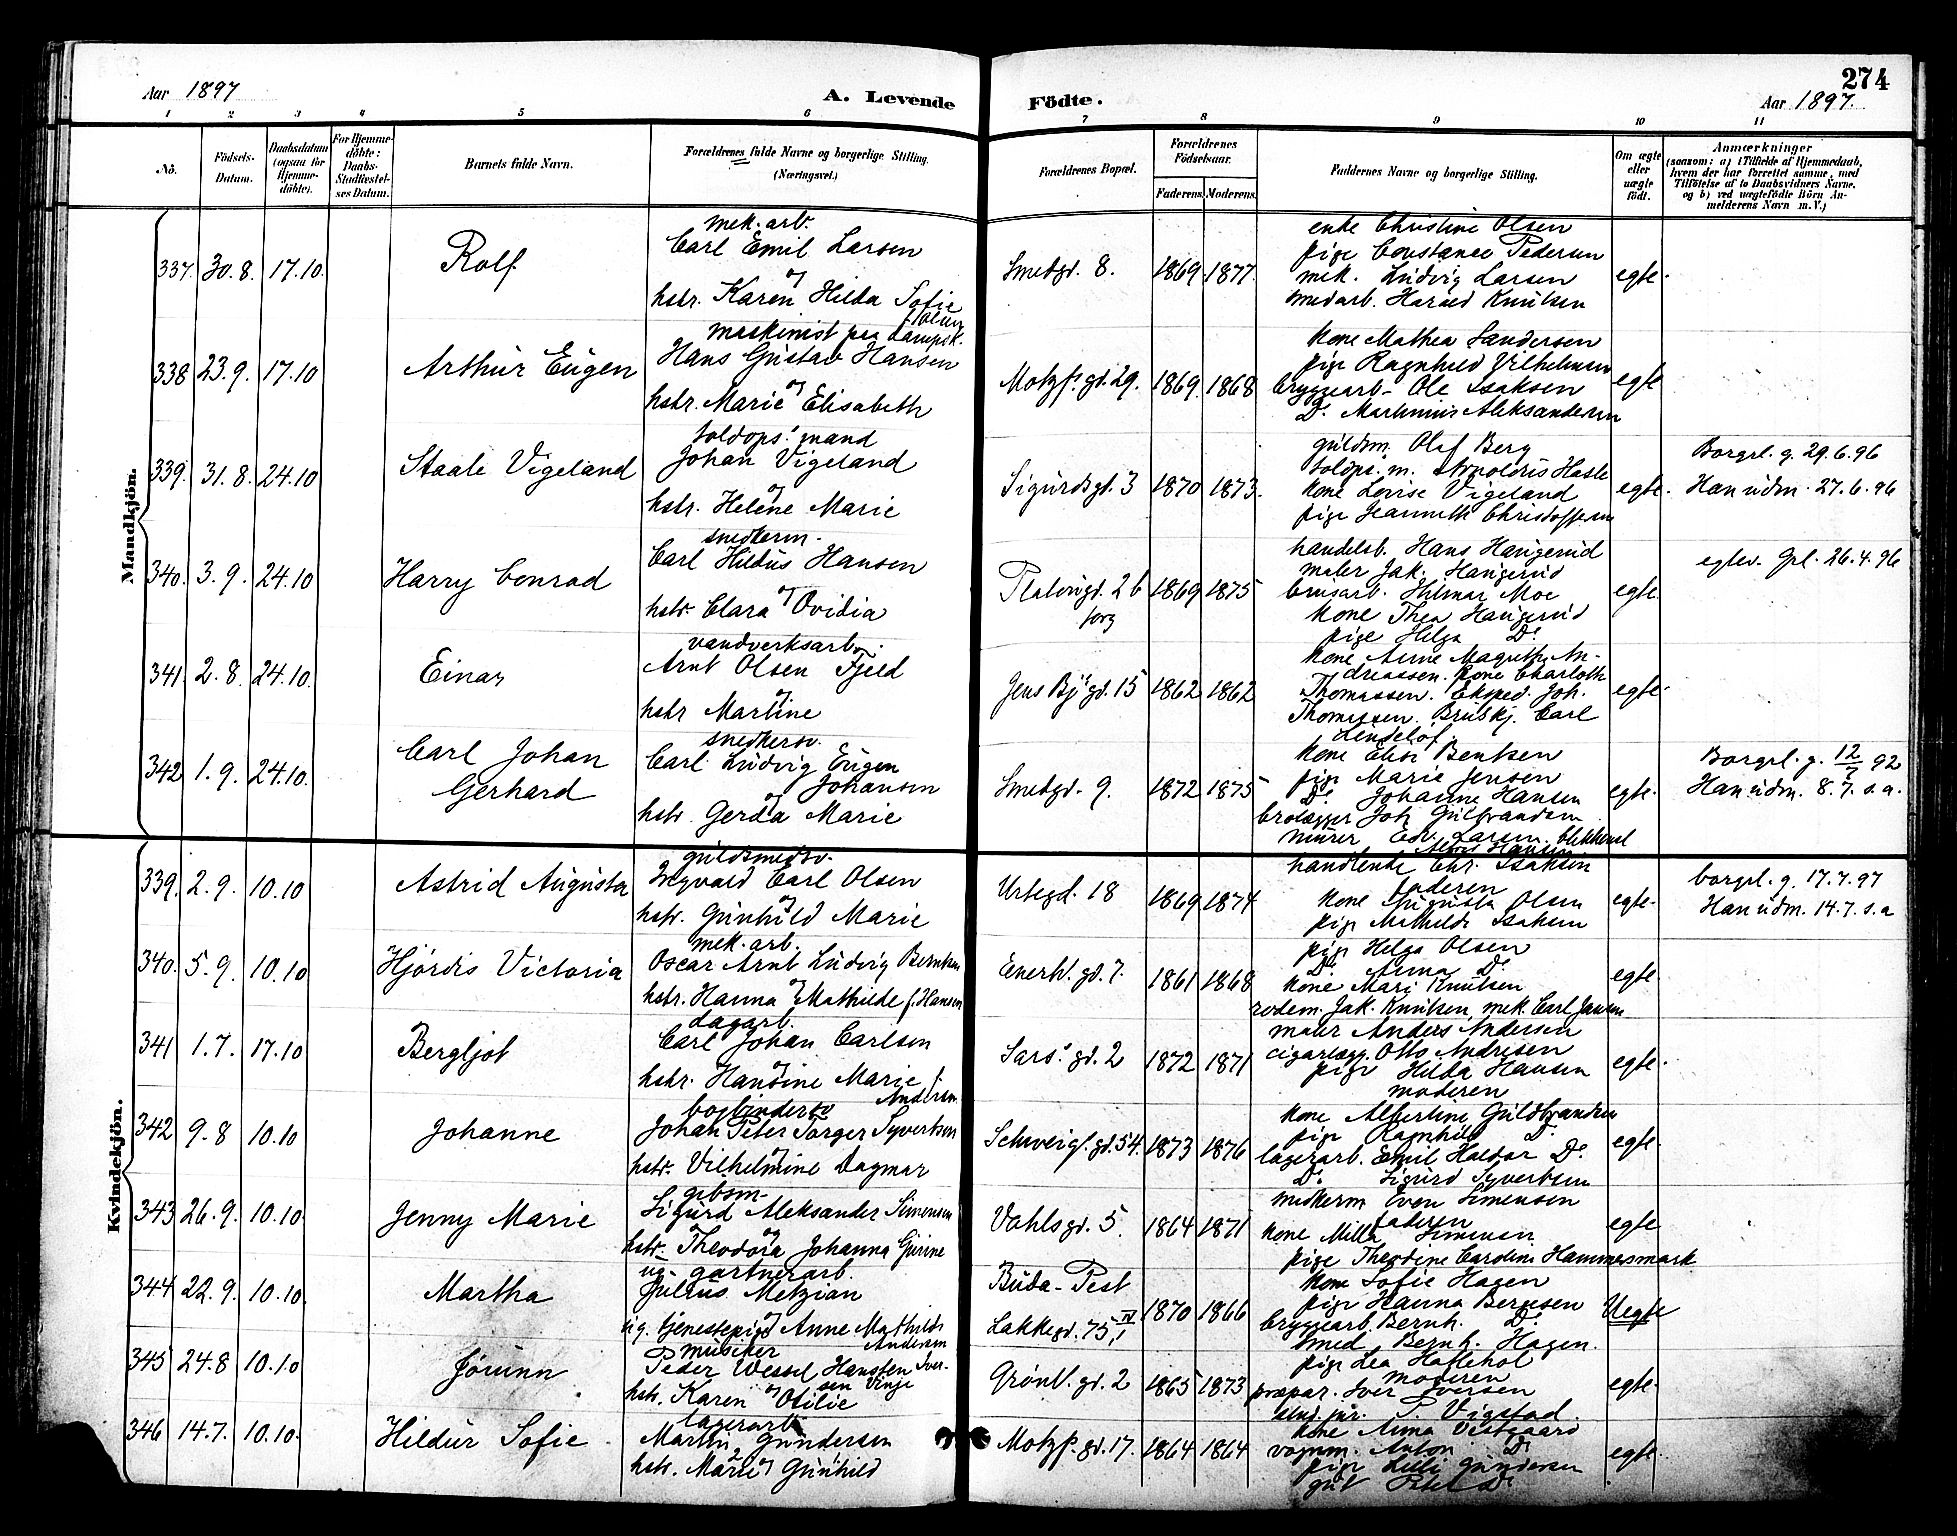 274
Aar 1897
A. Levende Födte.
Aar 1897.
1 2 3 4 5 6 7 8 9 10 11
No.
Födsels-Datum.
Daabsdatum (ogsaa for Hjemme-döbte).
For Hjemme-döbte: Daabs-Stadfæstel-ses Datum.
Barnets fulde Navn.
Forældrenes fulde Navne og borgerlige Stilling.
(Næringsvei.)
Forældrenes Bopæl.
Forældrenes Födselsaar.
Faderens. Moderens.
Faddernes Navne og borgerlige Stilling.
Om ægte eller uægte födt.
Anmærkninger
(saasom: a) i Tilfælde af Hjemmedaab,
hvem der har forrettet samme, med
Tilföielse af to Daabsvidners Navne,
og b) ved uægtefödte Börn An-
melderens Navn m. V.)
Mandkjön.
337. 30.8. 17.10. Rolf
mek. arb.
Carl Emil Larsen
og
hstr. Karen Hilda Sofie
Smedgd. 8. 1869 1877
enke Christine Olsen
pige Constance Pedersen
mek. Ludvig Larsen
smedarb. Harald Knutsen
egte.
338 23.9. 17.10 Arthur Eugen
maskinist paa Dampsk.
Hans Gustav Hansen
og
hstr. Marie Elisabeth
Motzf. gd. 29. 1869 1868
kone Mathea Sandersen
pige Ragnhild Vilhelmsen
bryggearb. Ole Isaksen
Do. Martinius Aleksandersen
egte
339. 31.8. 24.10 Staale Vigeland
toldops. mand
Johan Vigeland
og
hstr. Helene Marie
Sigurdsgd. 3 1870 1873.
guldsm. Olaf Berg
toldops. m. Hasle
kone Lovise Vigeland
pige Jeanneth Christoffersen
egte.
Borgerl. g. 29.6.96
Han udm. 27.6.96
340. 3.9. 24.10 Harry Conrad
snedkerm.
Carl Hildus Hansen
og
hstr. Clara Ovidia
Platousgd. 2 b 1869 1875
handelsb. Hans Haugerud
maler Jak. Haugerud
brusarb. Hilmar Moe
kone Thea Haugerud
pige Helga Do.
egte.
egtev. Grl. 26.4.96
341. 2.8. 24.10. Einar
vandverksarb.
Arnt Olsen Fjeld
og
hstr Martine
Jens Bj. gd. 15 1862 1862
kone Anne Magrethe An-
dreassen. kone Charloth
Thomassen. Eksped. Joh.
Thomassen. Brusk. Carl
Lindelöf.
egte.
342 1.9. 24.10. Carl Johan
Gerhard
snedkersv.
Carl Ludvig Eugen
Johansen
og
hstr. Gerda Marie
Smedgd. 9. 1872 1875
kone Elise Bentsen
pige Marie Jensen
Do. Johanne Hansen
brolægger Joh. Gulbrandsen
murer Edv. Larsen. blikkensl
egte.
Borgerl. g. 12/7 92
Han udm. 8.7. s.a.
Kvindekjön.
339. 2.9. 10.10 Astrid Augusta
guldsmedsv.
Sigvald Carl Olsen
og
hstr. Gunhild Marie
Urtegd. 18 1869 1874
handlende Chr. Isaksen
faderen
kone Augusta Olsen
pige Mathilde Isaksen
egte.
borgerl. g. 17.7.97
Han udm. 14.7. s.a
340. 5.9. 10.10 Hjördis Victoria
mek. arb.
Oscar Arnt Ludvig Berntsen
og
hstr. Hanna Mathilde f. Hansen
Enerh. gd. 7. 1861 1868
pige Helga Olsen
Do. Anna Do.
kone Mari Knutsen
rodem. Jak. Knutsen, mek. Carl Jansen
egte.
341 1.7. 17.10 Bergljot
dagarb.
Carl Johan Carlsen
og
hstr. Handine Marie f.
Andersen
Sars' gd. 2 1872 1871
maler Anders Andersen
cigarlægg. Otto Andresen
pige Hilda Hansen
moderen
egte.
342 9.8 10.10 Johanne
bogbindersv
Johan Peter Torger Syvertsen
og
hstr. Vilhelmine Dagmar
Schweig. gd. 54. 1873 1876
kone Albertine Guldbrandsen
pige Ragnhild Do.
lagerarb. Emil Haldor Do.
Do. Sigurd Syvertsen
egte.
343 26.9. 10.10. Jenny Marie
gibsm.
Sigurd Aleksander Simensen
og
hstr. Theodora Johanna Gurine
Vahlsgd. 5. 1864 1871
snedkerm Even Simensen
faderen
kone Milla Simensen
pige Theodine Caroline Hammersmark
egte
344 22.9. 10.10. Martha
ug. gartnerarb.
Julius Metzian
og
ug. tjenestepige Anne Mathilde
Andersen
Buda-Pest
Lakkegd. 75, IV 1870 1866
kone Sofie Hagen
pige Hanna Berntsen
bryggearb. Bernh. Do.
smed Bernh. Hagen.
Uegte
345 24.8 10.10 Jörunn
musiker
Peder Wessel Hansten Iver-
sen Vinje
og
hstr. Karen Otilie
Grönl. gd. 2 1865 1873
pige Lea Haftehol
moderen
præpar. Iver Iversen
stud. jur. P. Vigstad.
egte.
346 14.7. 10.10. Hildur Sofie
lagerarb
Martin Gundersen
og
hstr. Marie Gunhild
Motzf. gd. 17. 1864 1864
kone Anna Vestgaard
vognm. Anton Do
pige Lilli Gundersen
gut Do
egte.